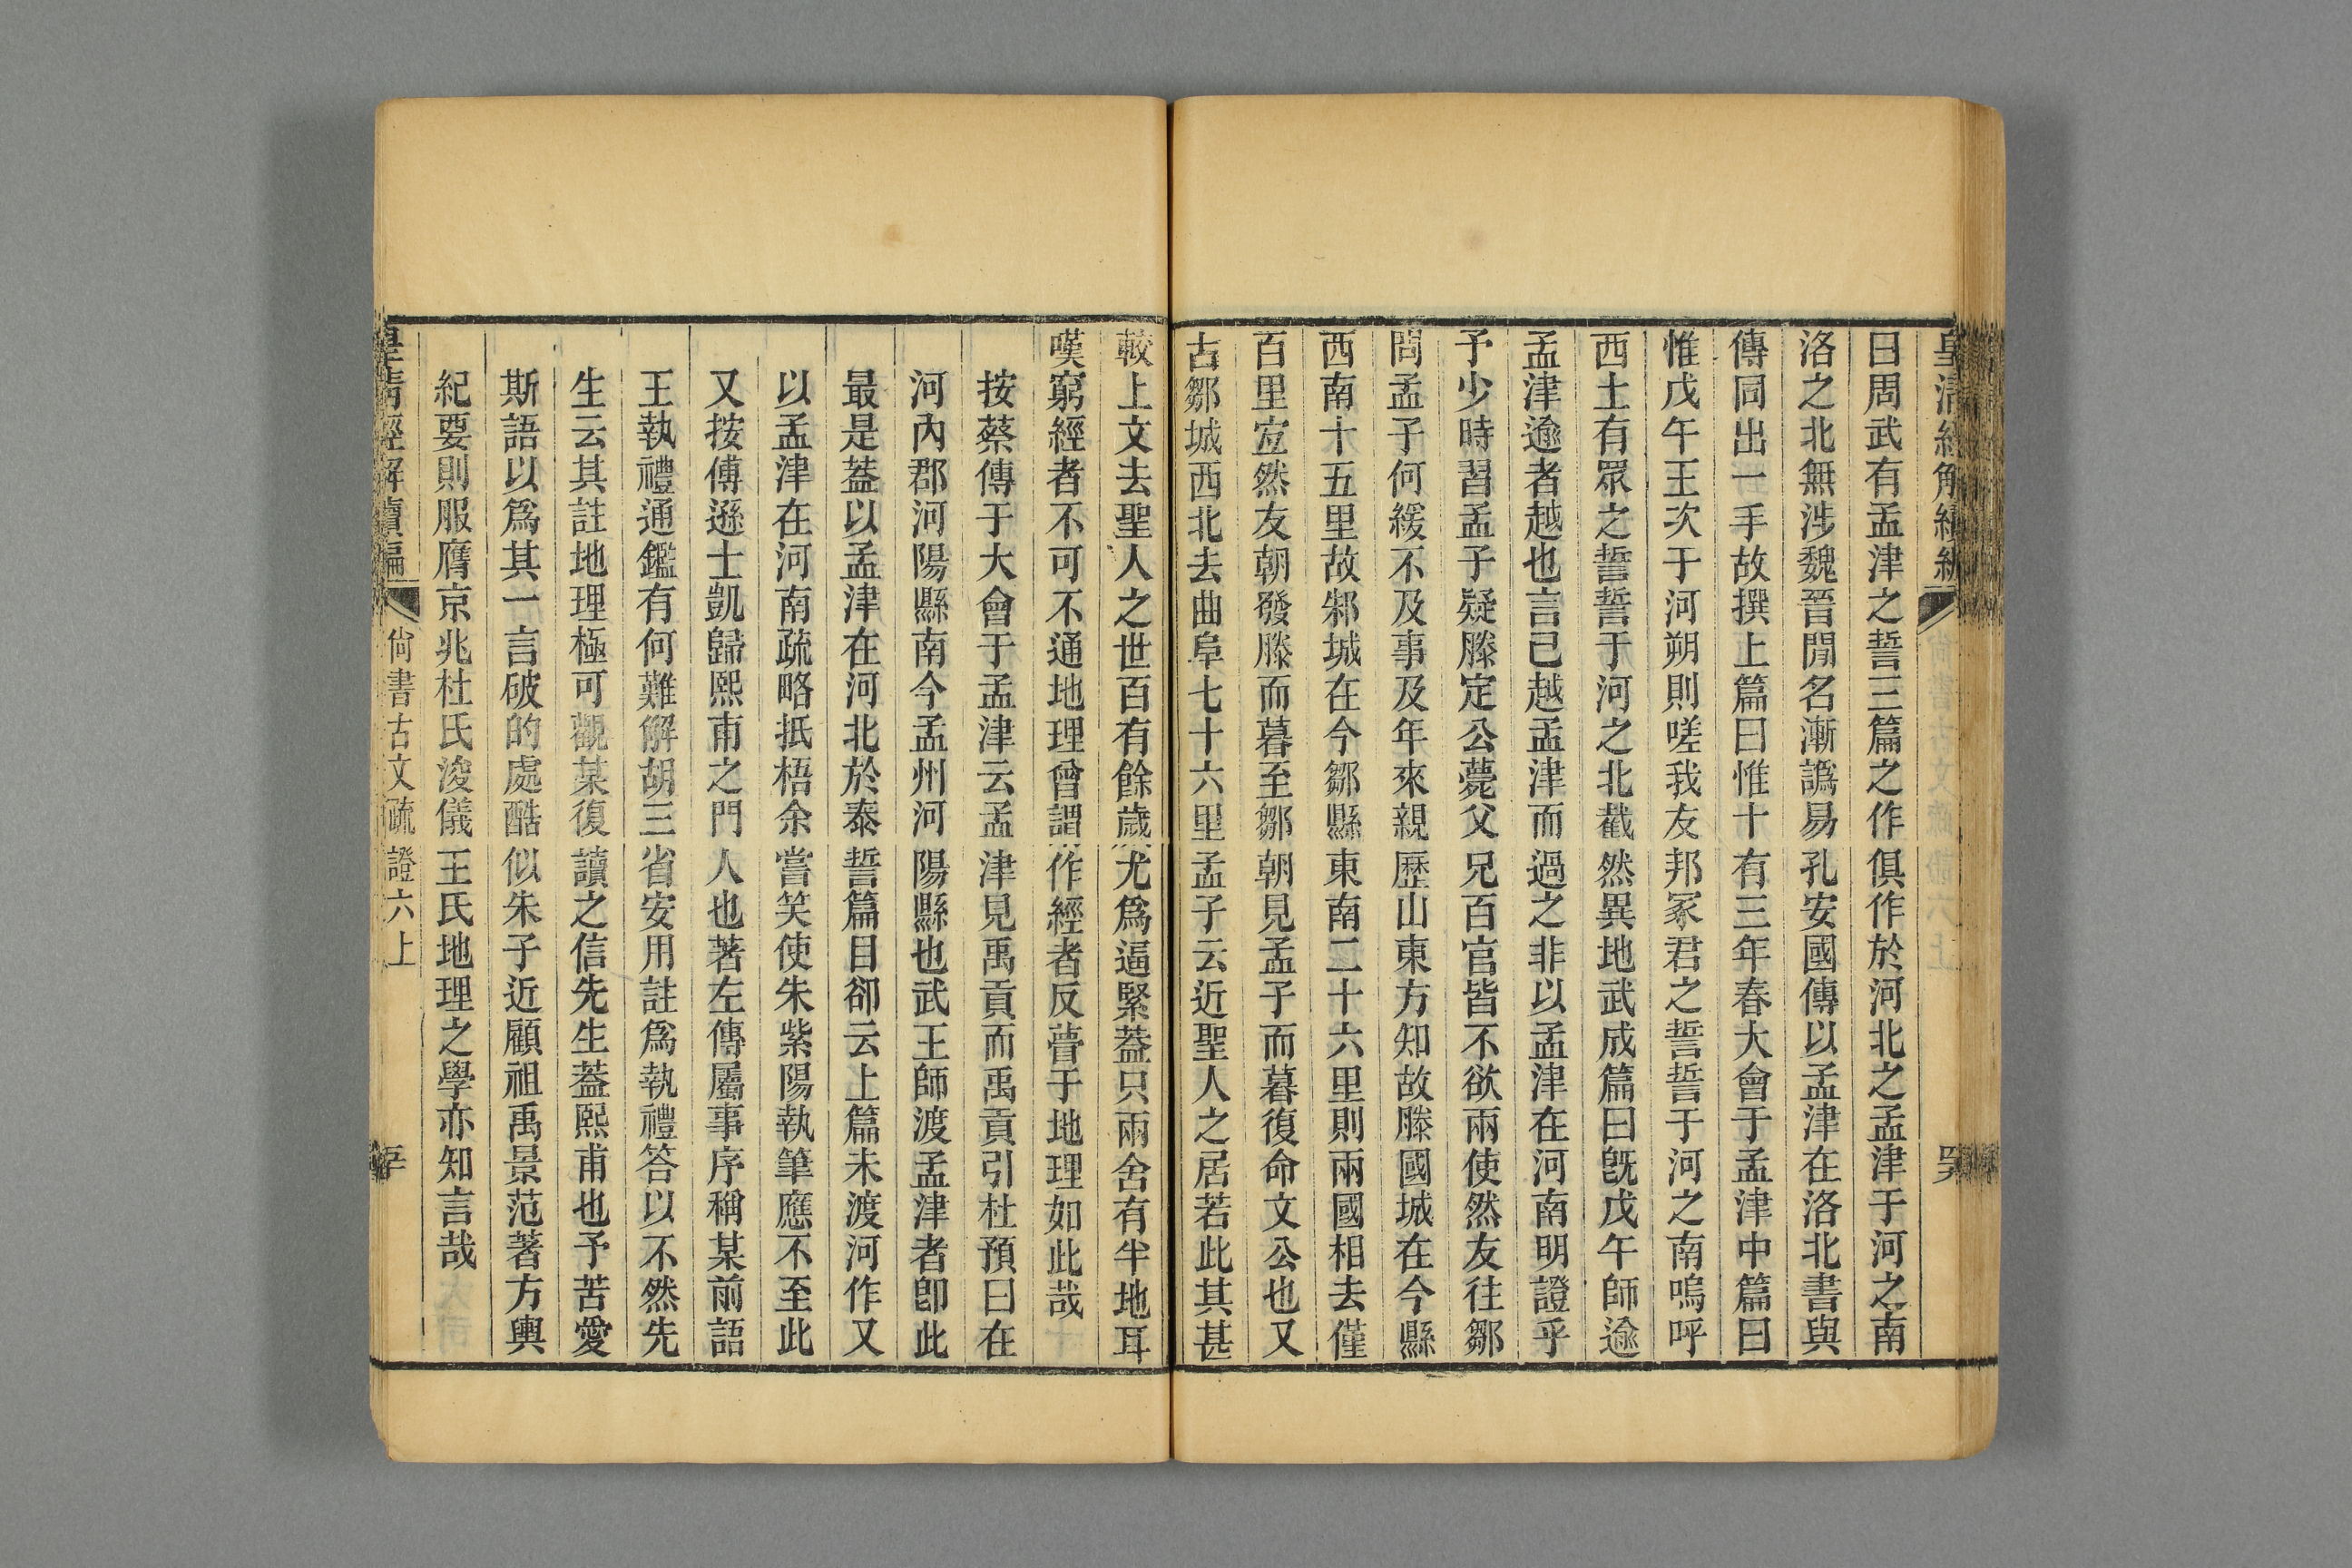 曰周武有孟津之誓三篇之作俱作於河北之孟津于河之南
洛之北無涉魏晉閒名漸譌易孔安國傳以孟津在洛北書與
傳同出一手故撰上篇曰惟十有三年春大會于孟津中篇曰
惟戊午王次于河朔則嗟我友邦冢君之誓誓于河之南嗚呼
西土有眾之誓誓于河之北截然異地武成篇曰旣戊午師逾
孟津逾者越也言已越孟津而過之非以孟津在河南明證乎
予少時習孟子疑滕定公薨父兄百官皆不欲兩使然友往鄒
問孟子何緩不及事及年來親歷山東方知故滕國城在今縣
西南十五里故邾城在今鄒縣東南二十六里則兩國相去僅
百里宐然友朝發滕而暮至鄒朝見孟子而暮復命文公也又
古鄒城西北去曲阜七十六里孟子云近聖人之居若此其甚
較上文去聖人之世百有餘歲尤爲逼緊蓋只兩舍有半地耳
嘆窮經者不可不通地理曾謂作經者反瞢于地理如此哉
按蔡傳于大會于孟津云孟津見禹貢而禹貢引杜預曰在
河內郡河陽縣南今孟州河陽縣也武王師渡孟津者卽此
最是蓋以孟津在河北於泰誓篇目卻云上篇未渡河作又
以孟津在河南疏略抵梧余嘗笑使朱紫陽執筆應不至此
又按傅遜士凱歸熙甫之門人也著左傳屬事序稱某前語
王執禮通鑑有何難解胡三省安用註爲執禮答以不然先
生云其註地理極可觀某復讀之信先生蓋熙甫也予苦愛
斯語以爲其一言破的處酷似朱子近顧祖禹景范著方輿
紀要則服膺京兆杜氏浚儀王氏地理之學亦知言哉
皇清經解續編
尙書古文疏證六上